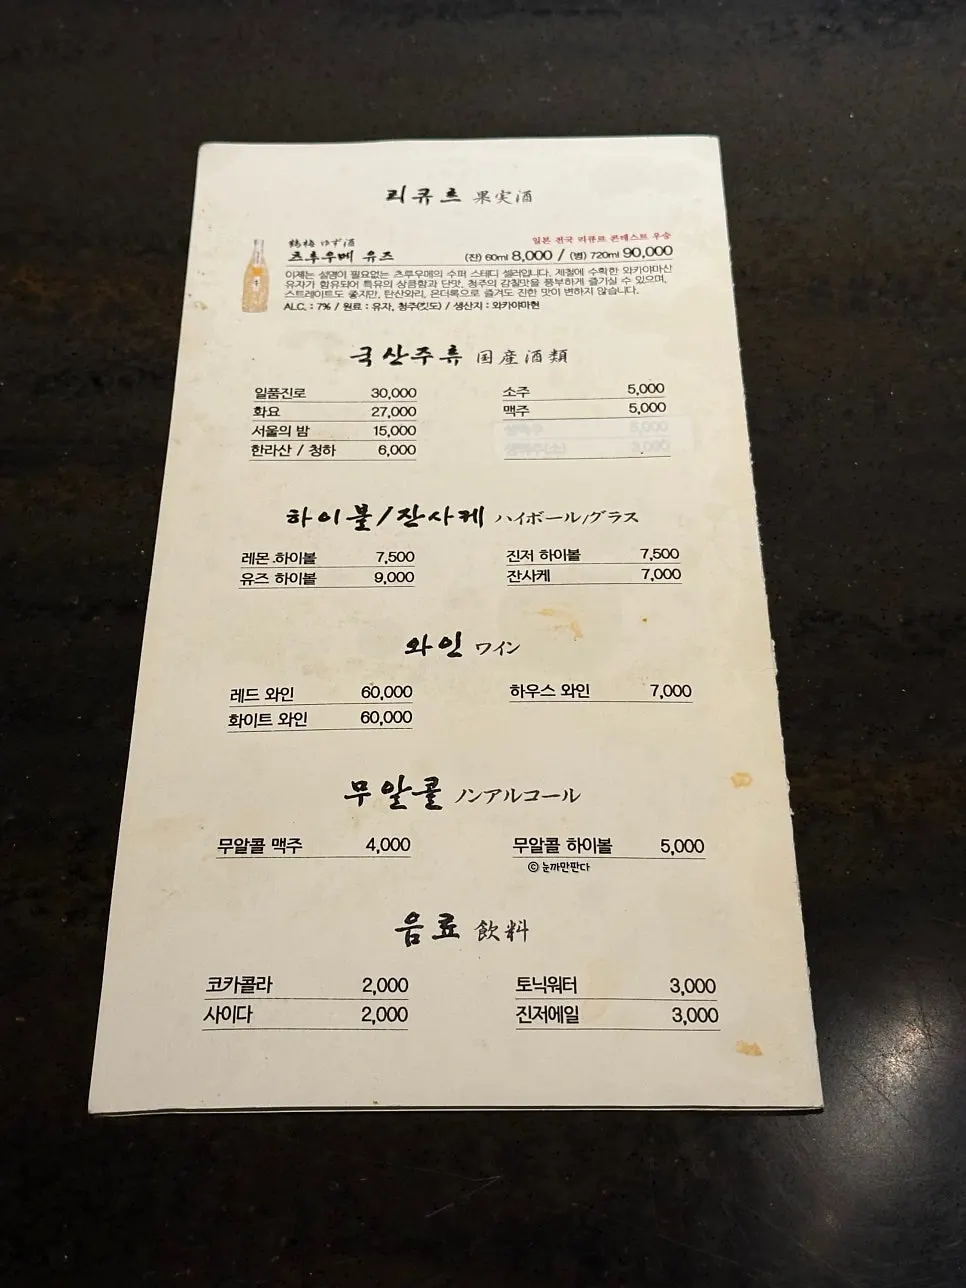 리큐르 果実酒
鶴梅 ゆず酒
일본 전국 리큐르 콘테스트 우승
츠루우메 유즈 (잔) 60ml 8,000 / (병) 720ml 90,000
이제는 설명이 필요없는 츠루우메의 수퍼 스테디 셀러입니다. 제철에 수확한 와카야마산
유자가 함유되어 특유의 상큼함과 단맛, 청주의 감칠맛을 풍부하게 즐기실 수 있으며,
스트레이트도 좋지만, 탄산와리, 온더록으로 즐겨도 진한 맛이 변하지 않습니다.
ALC. : 7% / 원료 : 유자, 청주(킷도) / 생산지 : 와카야마현
국산주류 国産酒類
일품진로 30,000
화요 27,000
서울의 밤 15,000
한라산 / 청하 6,000
소주 5,000
맥주 5,000
생맥주 5,000
생맥주(소) 3,000
하이볼/잔사케 ハイボール/グラス
레몬 하이볼 7,500
유즈 하이볼 9,000
진저 하이볼 7,500
잔사케 7,000
와인 ワイン
레드 와인 60,000
화이트 와인 60,000
하우스 와인 7,000
무알콜 ノンアルコール
무알콜 맥주 4,000
무알콜 하이볼 5,000
ⓒ 눈까만판다
음료 飲料
코카콜라 2,000
사이다 2,000
토닉워터 3,000
진저에일 3,000